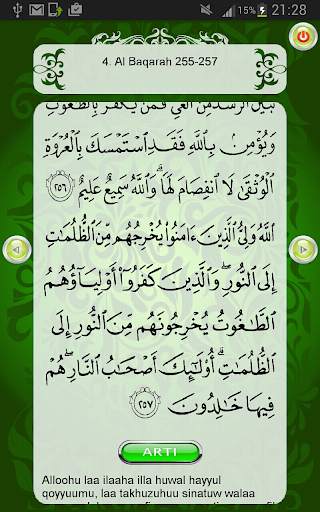 15% 21:28
4. Al Baqarah 255-257
وَيُؤْمِنۢ بِٱللَّهِ فَقَدِ ٱسْتَمْسَكَ بِٱلْعُرْوَةِ
ٱلْوُثْقَىٰ لَا ٱنفِصَامَ لَهَا ۗ وَٱللَّهُ سَمِيعٌ عَلِيمٌ ٢٥٦
ٱللَّهُ وَلِىُّ ٱلَّذِينَ ءَامَنُوا۟ يُخْرِجُهُم مِّنَ ٱلظُّلُمَٰتِ
إِلَى ٱلنُّورِ ۖ وَٱلَّذِينَ كَفَرُوٓا۟ أَوْلِيَآؤُهُمُ
ٱلطَّٰغُوتُ يُخْرِجُونَهُم مِّنَ ٱلنُّورِ إِلَى
ٱلظُّلُمَٰتِ ۗ أُو۟لَٰٓئِكَ أَصْحَٰبُ ٱلنَّارِ ۖ هُمْ
فِيهَا خَٰلِدُونَ ٢٥٧
ARTI
Alloohu laa ilaaha illa huwal hayyul
qoyyuumu, laa takhuzuhuu sinatuw walaa